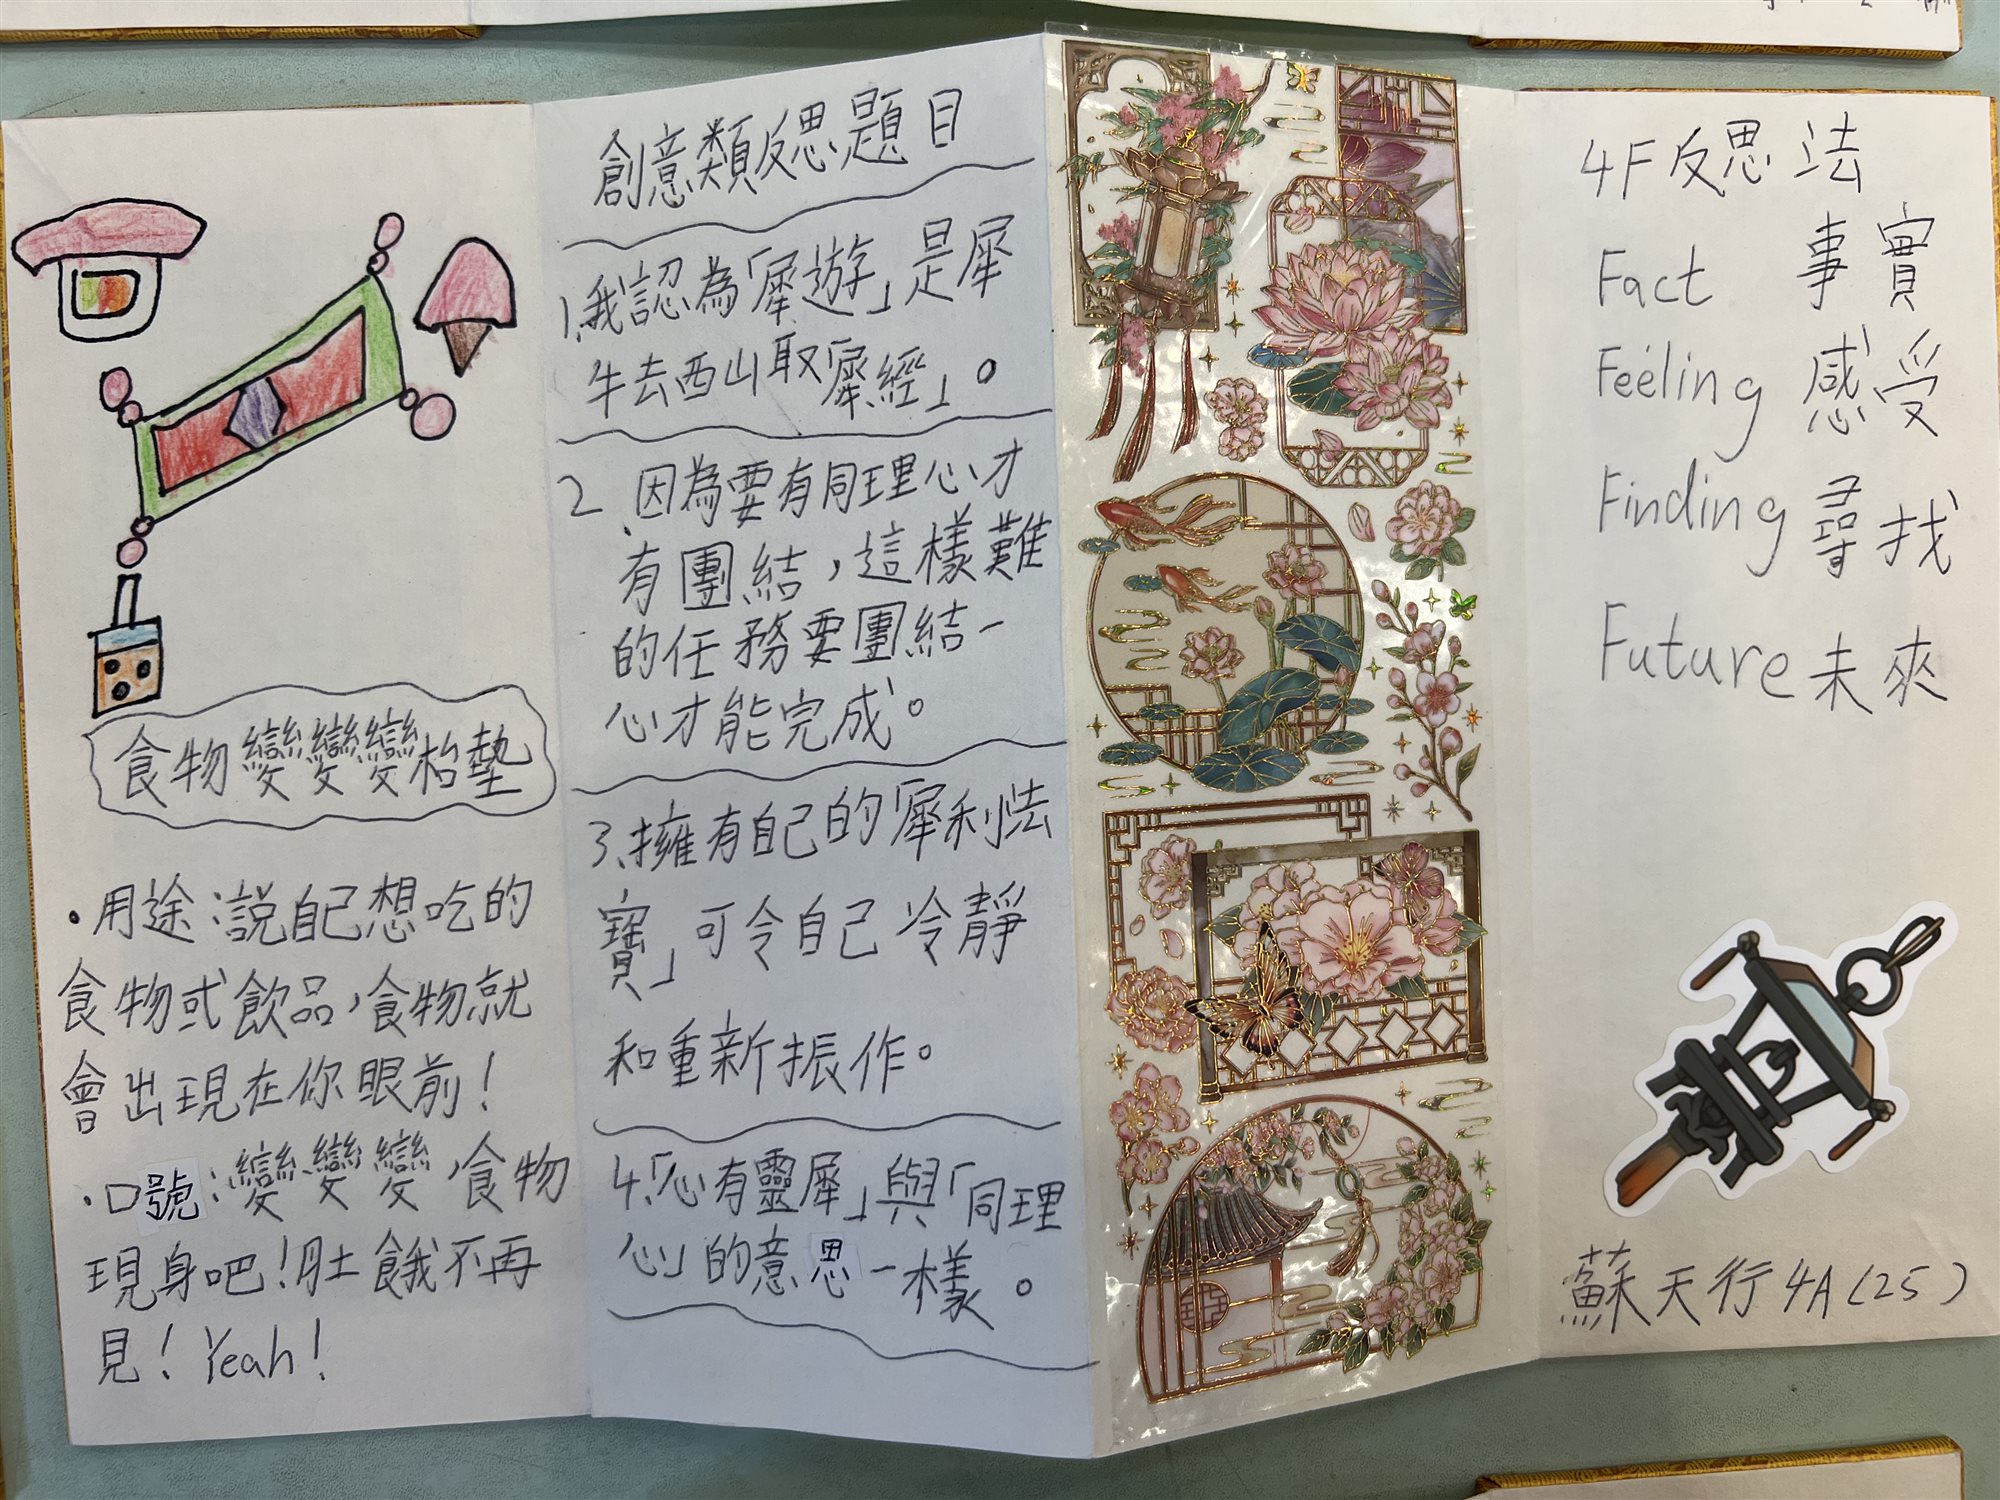 食物變變變枱墊
・用途：說自己想吃的
食物或飲品，食物就
會出現在你眼前！
・口號：變變變，食物
現身吧！肚餓不再
見！Yeah！
創意類反思題目
1.我認為「犀遊」是犀
牛去西山取犀經」。
2.因為要有同理心才
有團結，這樣難
的任務要團結一
心才能完成。
3.擁有自己的犀利法
寶」可令自己冷靜
和重新振作。
4.「心有靈犀」與「同理
心」的意思一樣。
4F反思法
Fact 事實
Feeling 感受
Finding 尋找
Future 未來
蘇天行4A(25)